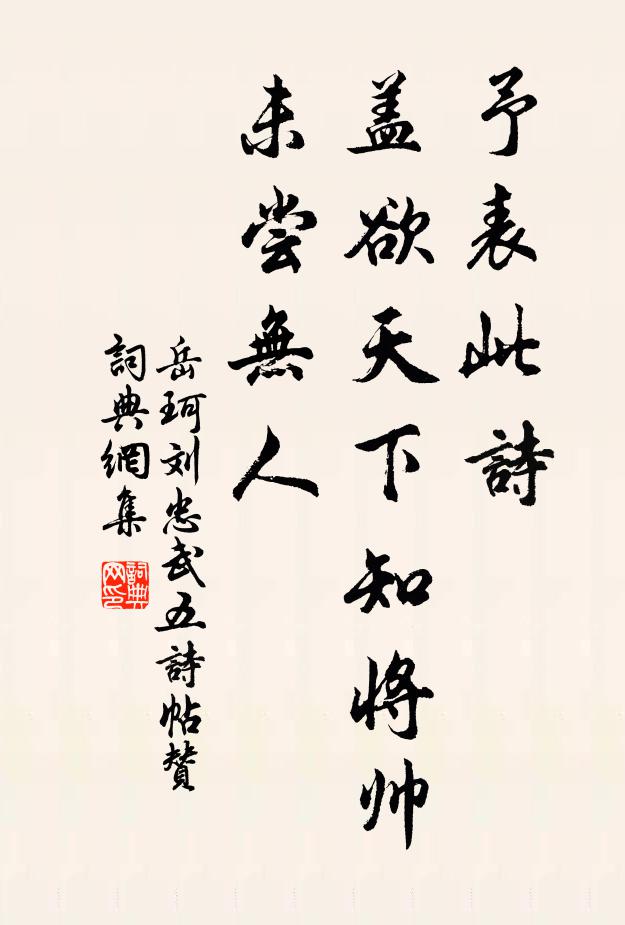 予表此詩
盖欲天下知将帅
未尝無人
岳珂刘忠武五詩帖赞
詞典網集
詞典网印